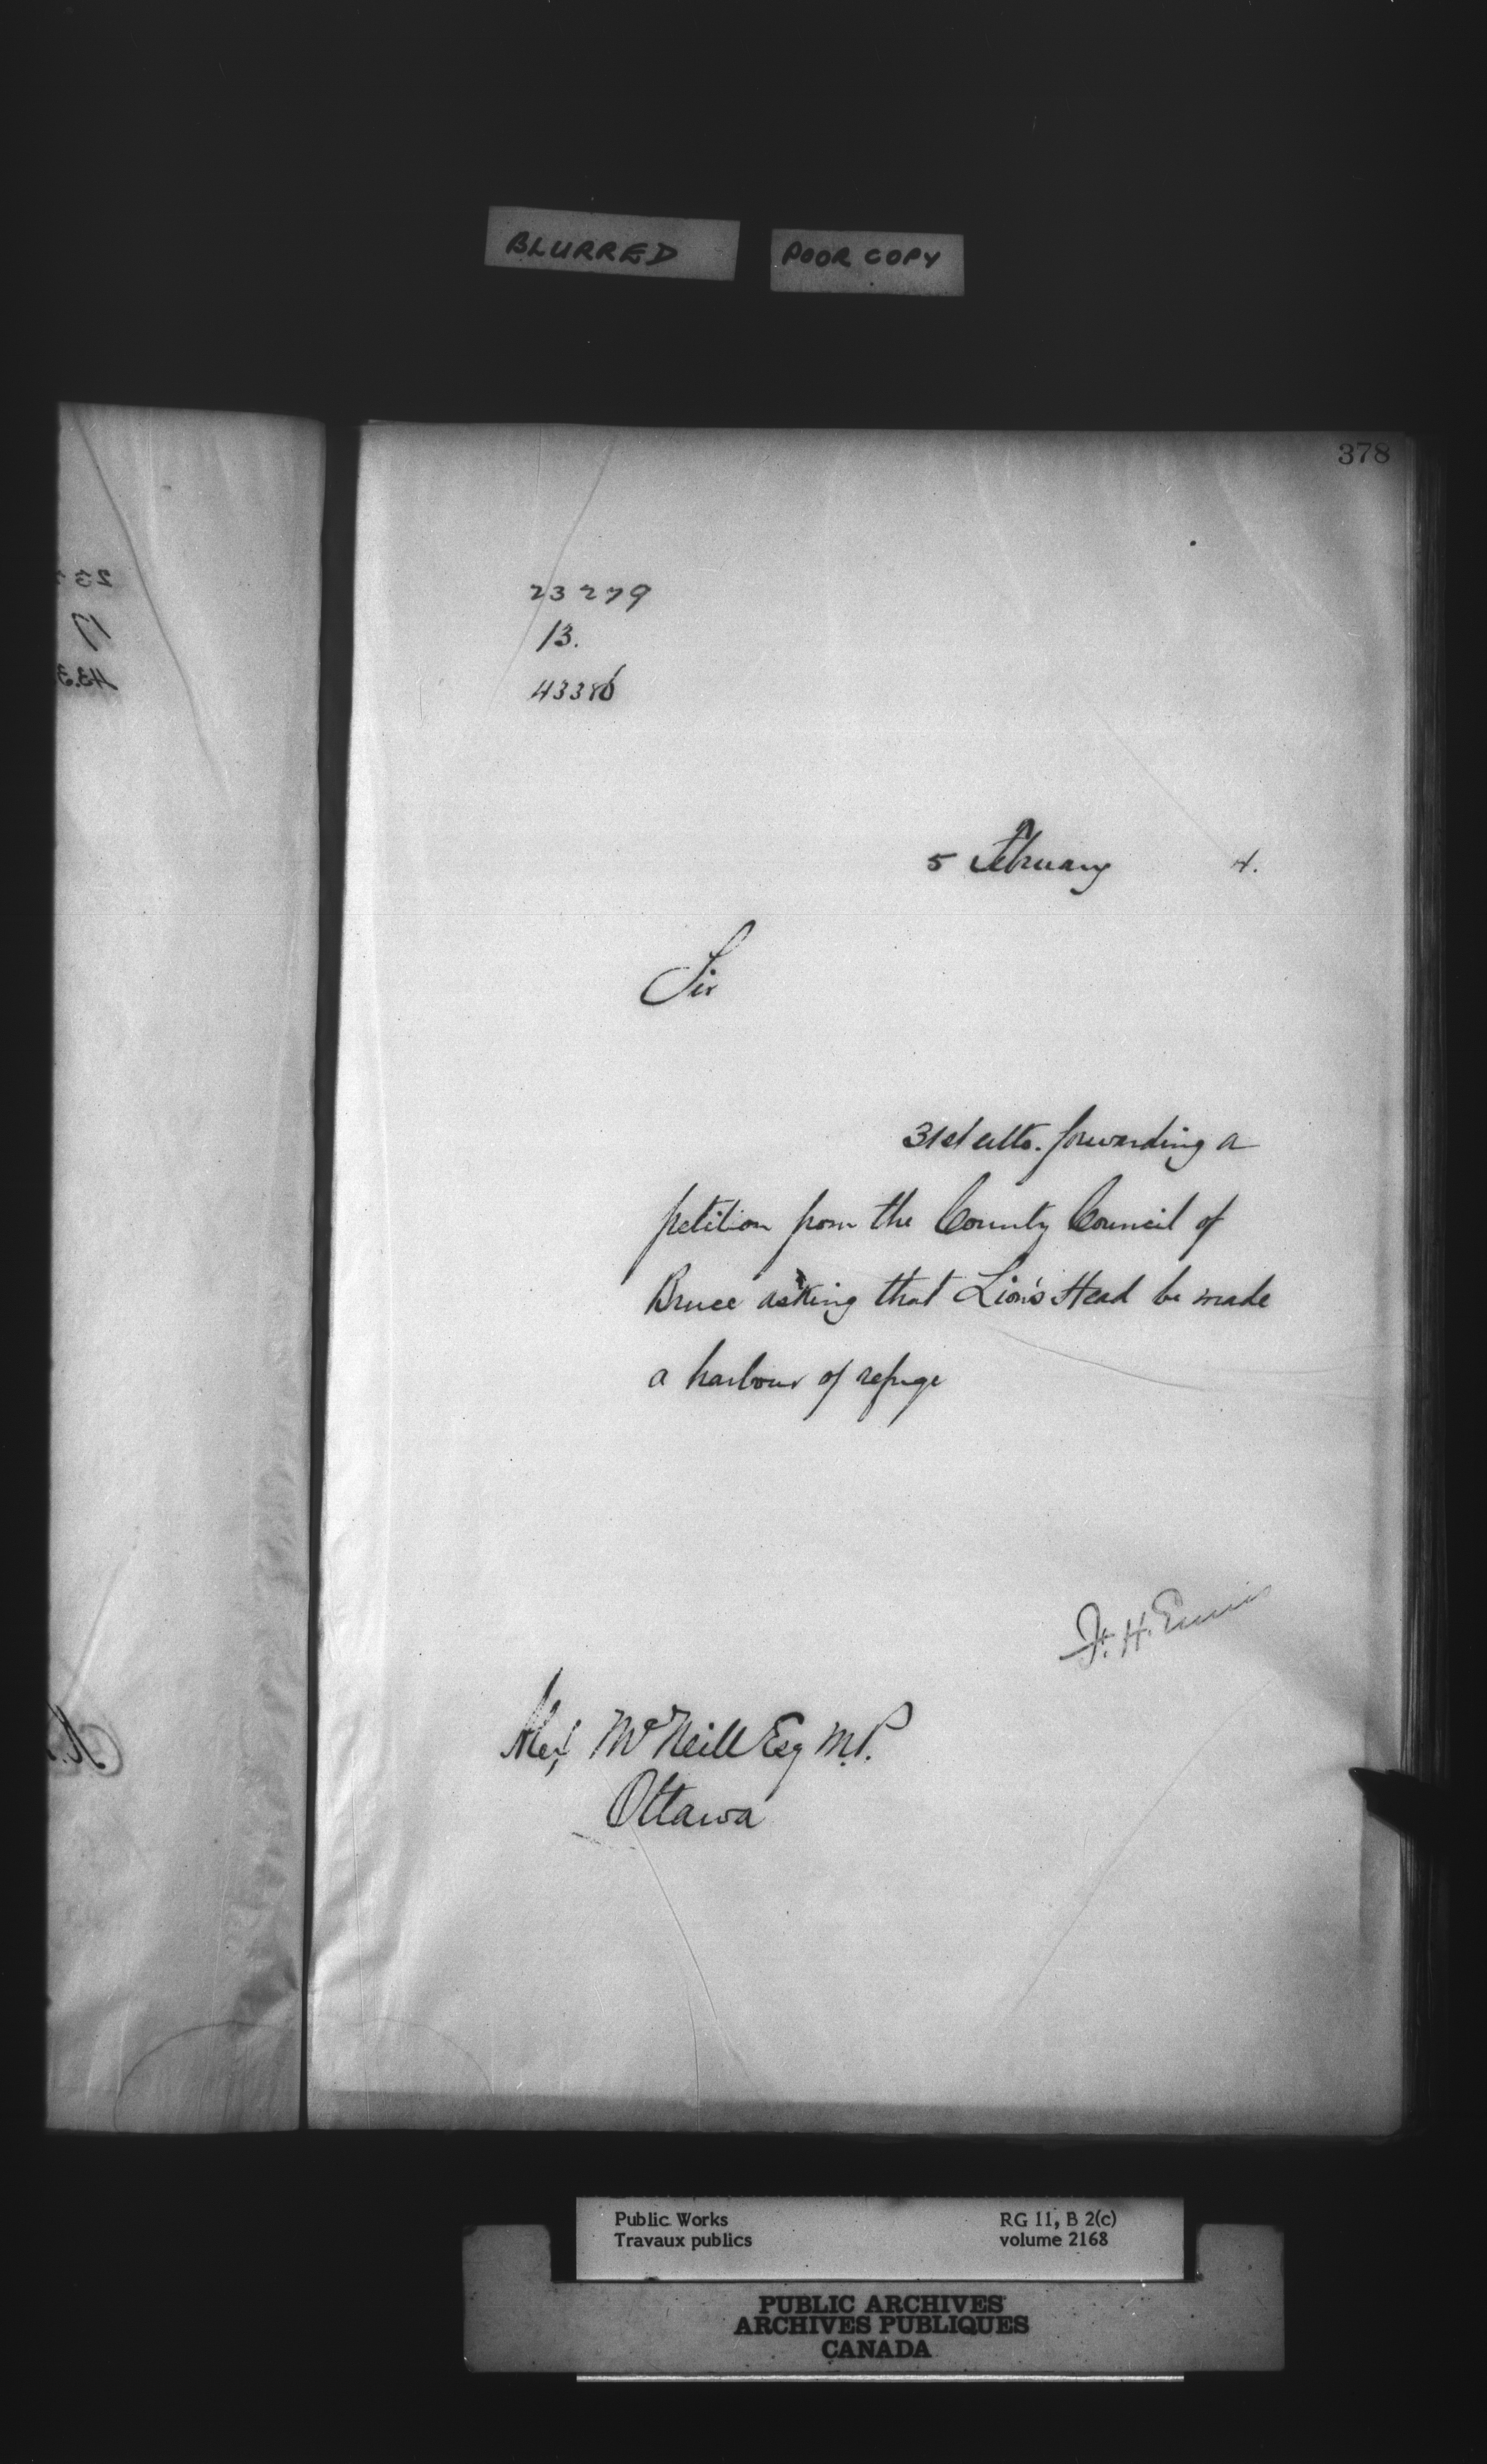 BLURRED
POOR COPY
378
23279
13.
43386
5 February 4.
Sir
31st ulto. forwarding a
petition from the County Council of
Bruce asking that Lion's Head be made
a harbour of refuge
F. H. Ennis
Alex McNeill Esq M.P.
Ottawa
Public Works
Travaux publics
RG 11, B 2(c)
volume 2168
PUBLIC ARCHIVES
ARCHIVES PUBLIQUES
CANADA